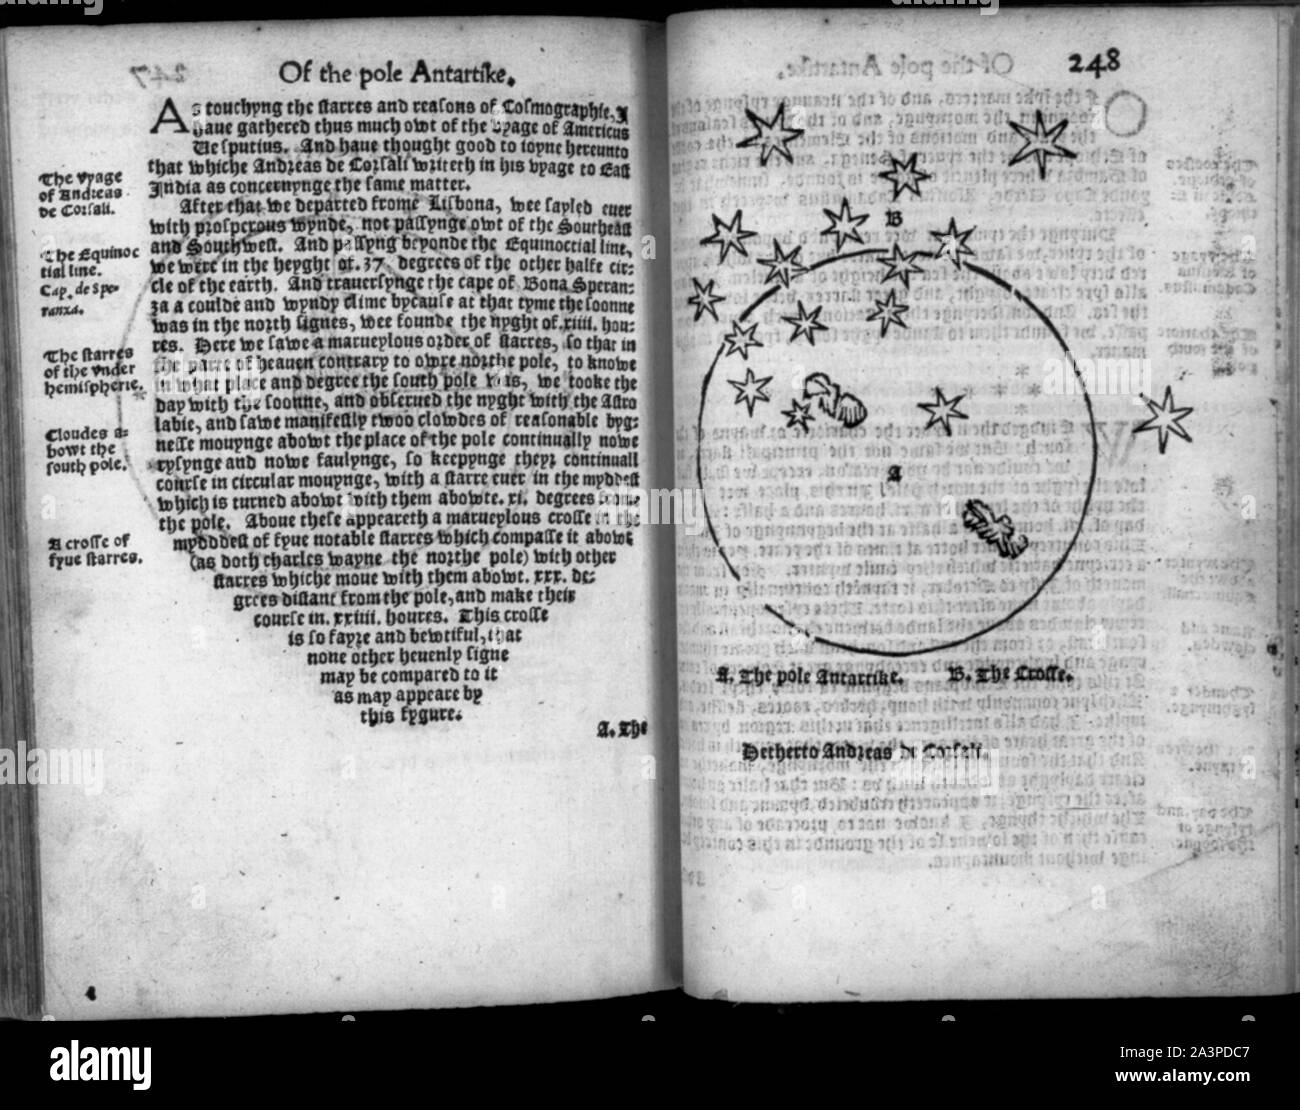 Of the pole Antartike.
As touchyng the starres and reasons of Cosmographie, I
haue gathered thus much owt of the vyage of Americus
Vesputius. And haue thought good to ioyne hereunto
that whiche Andreas de Corsali wryteth in his vyage to East
India as concernynge the same matter.
The vyage
of Andreas
de Corsali.
After that we departed frome Lisbona, wee sayled euer
with prosperous wynde, not passynge owt of the Southeast
and Southwest. And passyng beyonde the Equinoctial line,
we were in the heyght of. 37 degrees of the other halfe cir:
cle of the earth. And trauersynge the cape of Bona Speran:
za a coulde and wyndy clime bycause at that tyme the soonne
was in the north signes, wee founde the nyght of.xiiii. hou:
res. Here we sawe a marueylous order of starres, so that in
the parte of heauen contrary to owre northe pole, to knowe
in what place and degree the south pole was, we tooke the
day with the soonne, and obserued the nyght with the Astro
labie, and sawe manifestly twoo clowdes of reasonable byg:
nesse mouynge abowt the place of the pole continually nowe
rysynge and nowe faulynge, so keepynge theyr continuall
course in circular mouynge, with a starre euer in the myddest
which is turned abowt with them abowte. xi. degrees frome
the pole. Aboue these appeareth a marueylous crosse in the
myddest of fyue notable starres which compasse it abowt
(as doth charles wayne the northe pole) with other
starres whiche moue with them abowt. xxx. de:
grees distant from the pole, and make their
course in. xxiiii. houres. This crosse
is so fayre and bewtiful, that
none other heuenly signe
may be compared to it
as may appeare by
this fygure.
The Equinoc
tial line.
Cap. de Spe=
ranza.
The starres
of the vnder
hemispherie.
Cloudes a:
bowt the
south pole.
A crosse of
fyue starres.
A. The
248
B
A
A. The pole Antartike. B. The Crosse.
Hetherto Andreas de Corsali.
alamy
Image ID: A3PDC7
www.alamy.com